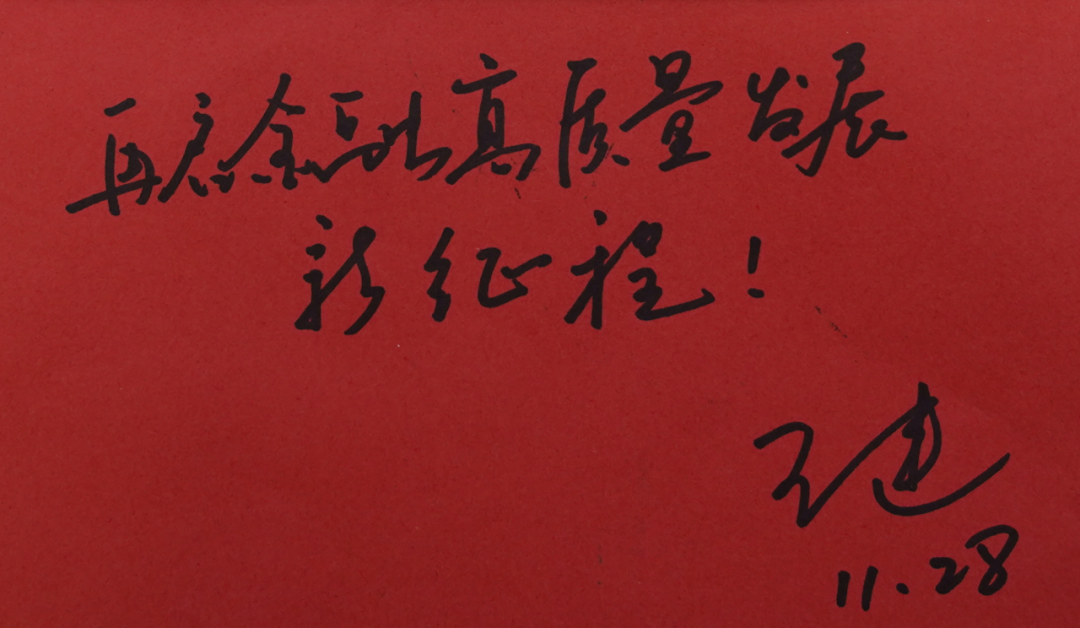 再启金融高质量发展
新征程！
王建
11.28